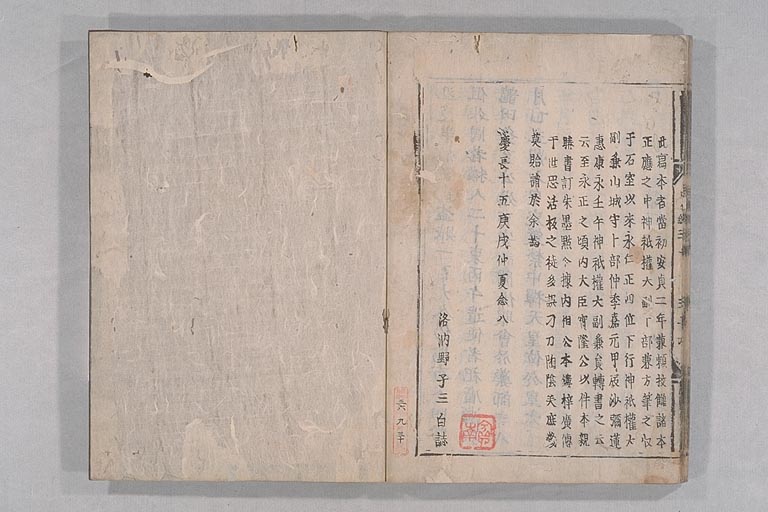 此寫本者當初安貞二年兼頼技讎該本
正應之中神祇權大副卜部兼方華之収
于石室以來永仁正四位下行神祇權大
副兼山城守卜部仲季嘉元甲辰沙彌蓮
惠康永壬午神祇權大副兼員轉書之云
云至永正之頃内大臣實隆公以件本親
聯書訂朱墨點今據内相公本壽梓廣傳
于世恐活板之徒多誤刁刀陶陰矣庶幾
莫貽誚於余焉
慶長十五庚戌仲夏念八
洛汭野子三白誌